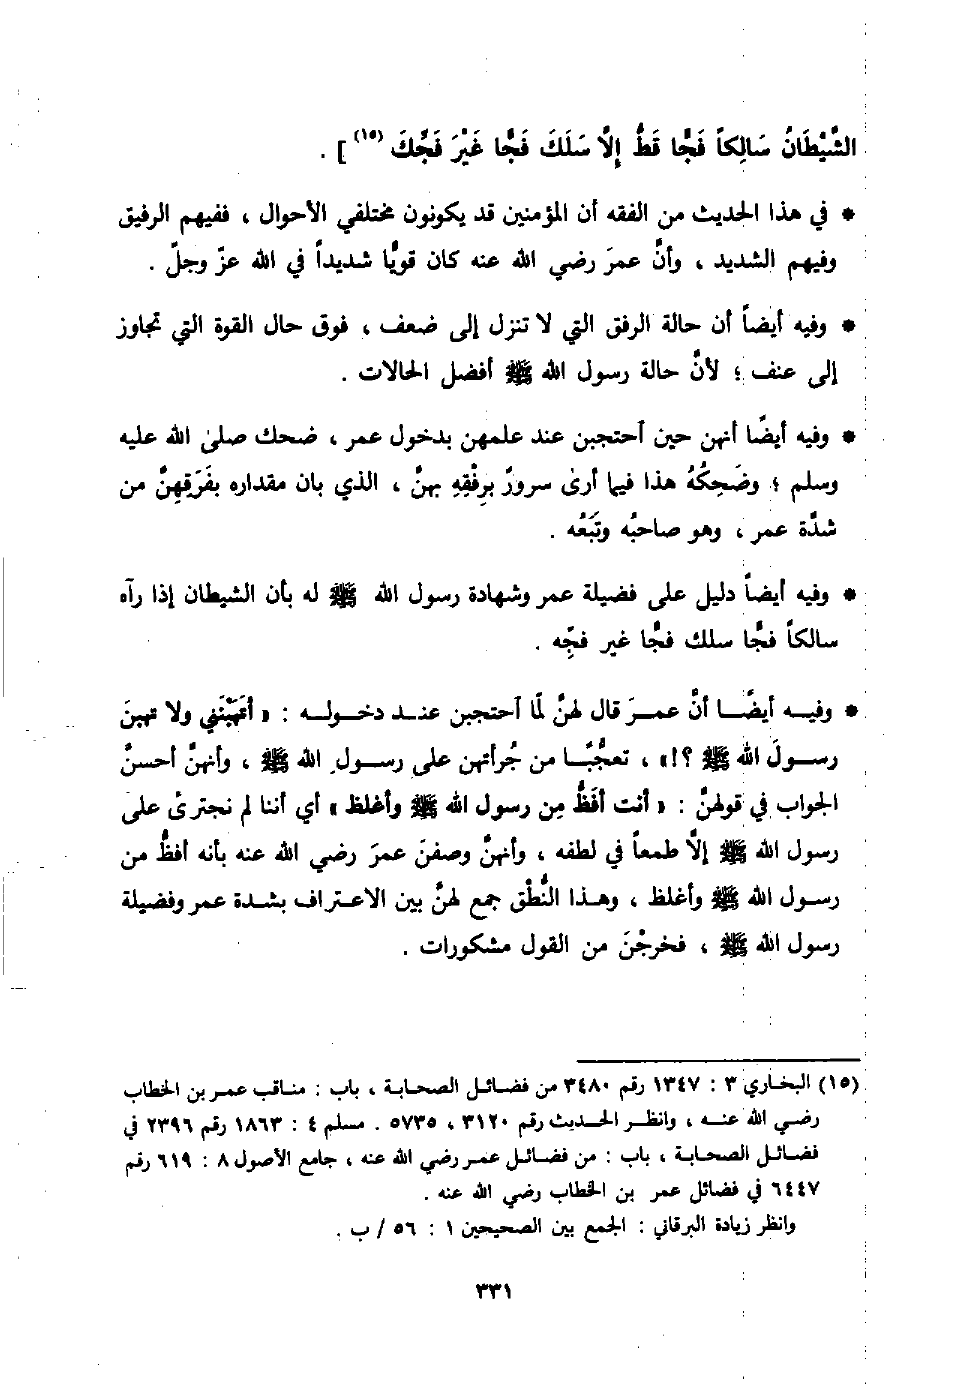 الشَّيْطَانُ سَالِكاً فَجًّا قَطُّ إِلَّا سَلَكَ فَجًّا غَيْرَ فَجِّكَ (١٥) ] .
* في هذا الحديث من الفقه أن المؤمنين قد يكونون مختلفي الأحوال ، ففيهم الرفيق
وفيهم الشديد ، وأنَّ عمرَ رضي الله عنه كان قويًّا شديداً في الله عزّ وجلّ .
* وفيه أيضاً أن حالة الرفق التي لا تنزل إلى ضعف ، فوق حال القوة التي تجاوز
إلى عنف ؛ لأنَّ حالة رسول الله ﷺ أفضل الحالات .
* وفيه أيضًا أنهن حين آحتجبن عند علمهن بدخول عمر ، ضحك صلىٰ الله عليه
وسلم ؛ وضَحِكُهُ هذا فيما أرىٰ سرورٌ برِفْقِهِ بهنَّ ، الذي بان مقداره بفَرَقِهِنَّ من
شدَّة عمر ، وهو صاحبُه وتَبَعُه .
* وفيه أيضاً دليل على فضيلة عمر وشهادة رسول الله ﷺ له بأن الشيطان إذا رآه
سالكاً فجًّا سلك فجًّا غير فجِّه .
* وفيه أيضًا أنَّ عمرَ قال لهنَّ لمّا آحتجبن عند دخوله : « أتَهَبْنَني ولا تهبنَ
رسولَ الله ﷺ ؟! » ، تعجُّبًا من جُرأتهن على رسول الله ﷺ ، وأنهنَّ أحسنَّ
الجواب في قولهنَّ : « أنت أفَظُّ مِن رسول الله ﷺ وأغلظ » أي أننا لم نجترئ على
رسول الله ﷺ إلَّا طمعاً في لطفه ، وأنهنَّ وصفنَ عمرَ رضي الله عنه بأنه أفظُّ من
رسول الله ﷺ وأغلظ ، وهذا النُّطْق جمع لهنَّ بين الاعتراف بشدة عمر وفضيلة
رسول الله ﷺ ، فخرجْنَ من القول مشكورات .
(١٥) البخاري ٣ : ١٣٤٧ رقم ٣٤٨٠ من فضائل الصحابة ، باب : مناقب عمر بن الخطاب
رضي الله عنه ، وانظر الحديث رقم ٣١٢٠ ، ٥٧٣٥ . مسلم ٤ : ١٨٦٣ رقم ٢٣٩٦ في
فضائل الصحابة ، باب : من فضائل عمر رضي الله عنه ، جامع الأصول ٨ : ٦١٩ رقم
٦٤٤٧ في فضائل عمر بن الخطاب رضي الله عنه .
وانظر زيادة البرقاني : الجمع بين الصحيحين ١ : ٥٦ / ب .
٣٣١